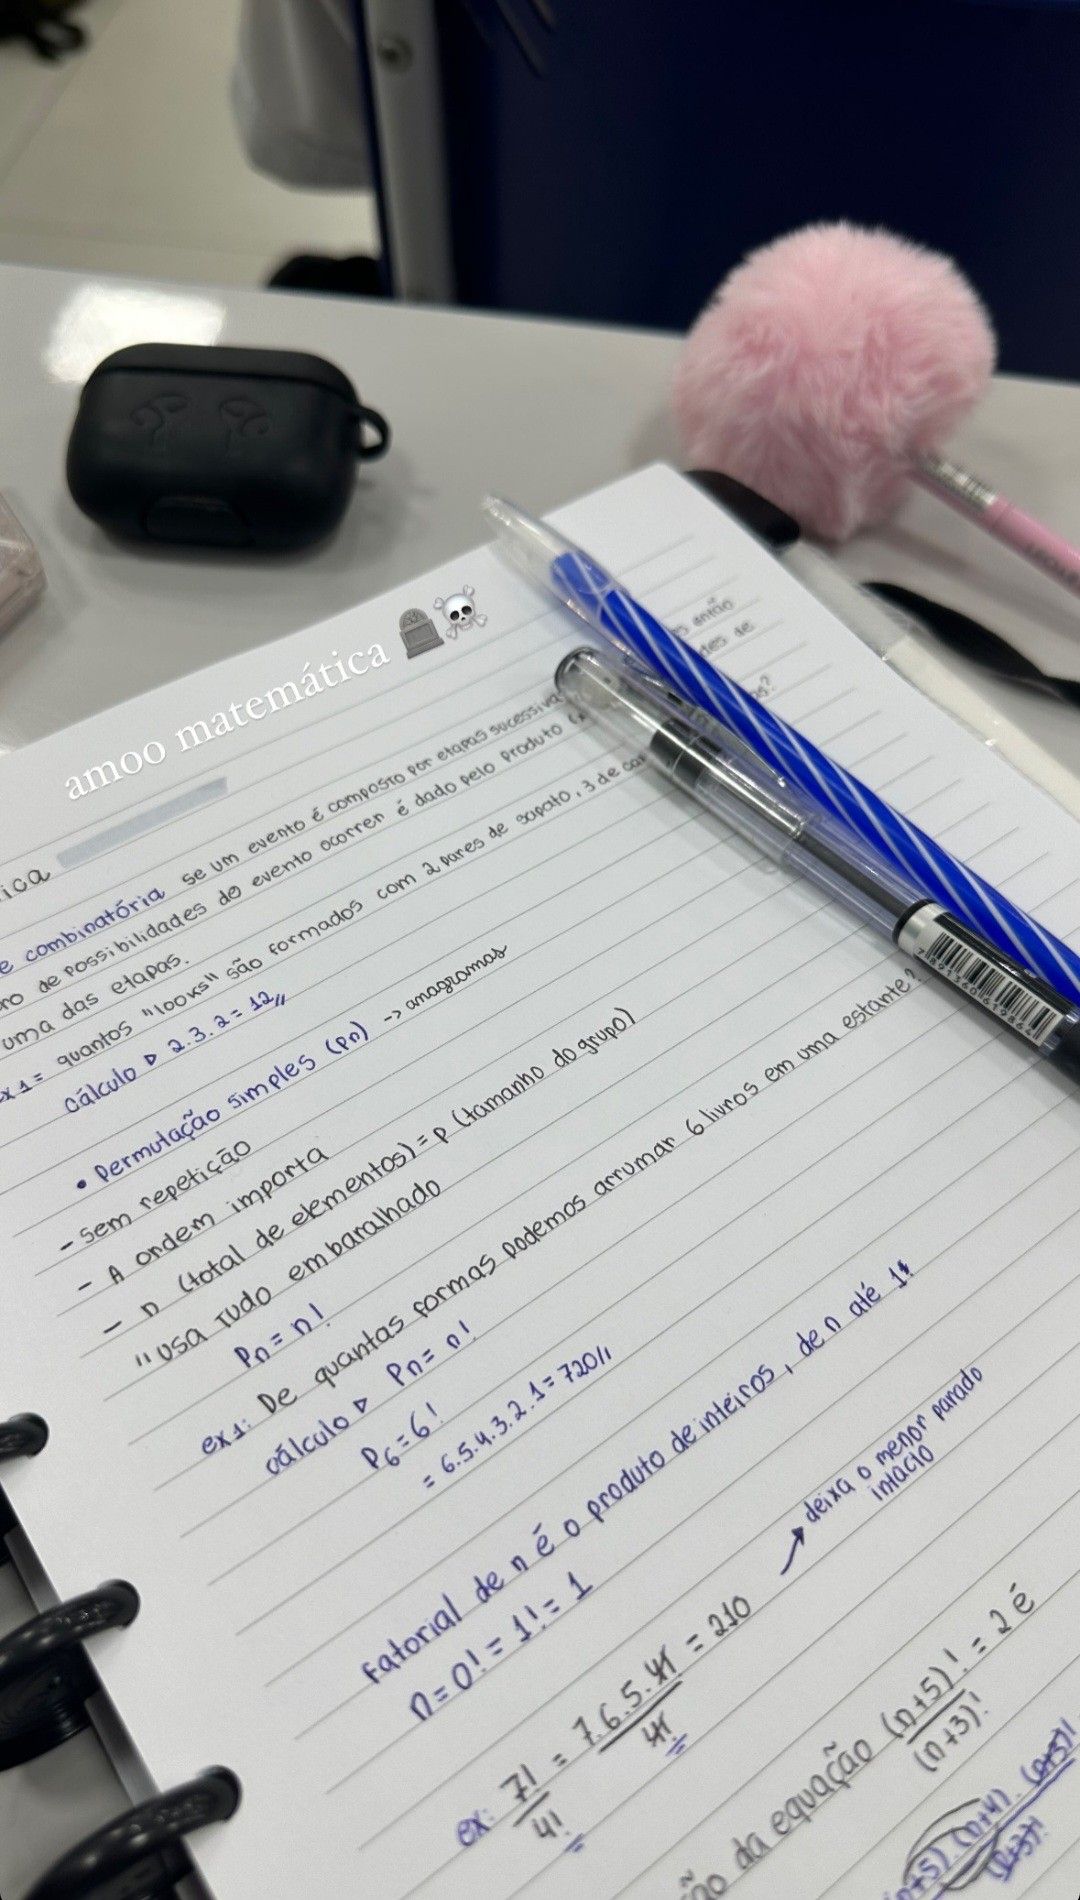 amoo matemática 🪦☠️
ica
e combinatória se um evento é composto por etapas sucessiva
ro de possibilidades do evento ocorrer é dado pelo produto
uma das etapas.
ex1= quantos "looks" são formados com 2 pares de sapato, 3 de
cálculo ▷ 2.3.2 = 12//
• Permutação simples (Pn) -> anagramas
- sem repetição
- A ordem importa
- n (total de elementos) = p (tamanho do grupo)
"usa tudo embaralhado
Pn = n!
ex1: De quantas formas podemos arrumar 6 livros em uma estante?
cálculo ▷ Pn = n!
P6 = 6!
= 6.5.4.3.2.1 = 720//
Fatorial de n é o produto de inteiros, de n até 1!
n = 0! = 1! = 1
deixa o menor parado
intacto
ex: 7!/4! = 7.6.5.4!/4! = 210
ão da equação (n+5)!/(n+3)! = 2 é
(n+5).(n+4).(n+3)!
(n+3)!
7 891360 619864